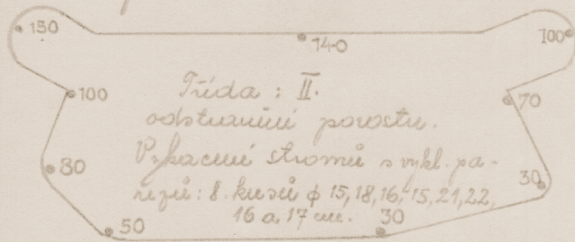 130
140
100
100
70
Třída : II.
odstranění porostu.
Vykácení stromů s vykl. pa-
řezů : 8. kusů ϕ 15, 18, 16, 15, 21, 22,
16 a 17 cm.
80
30
50
30